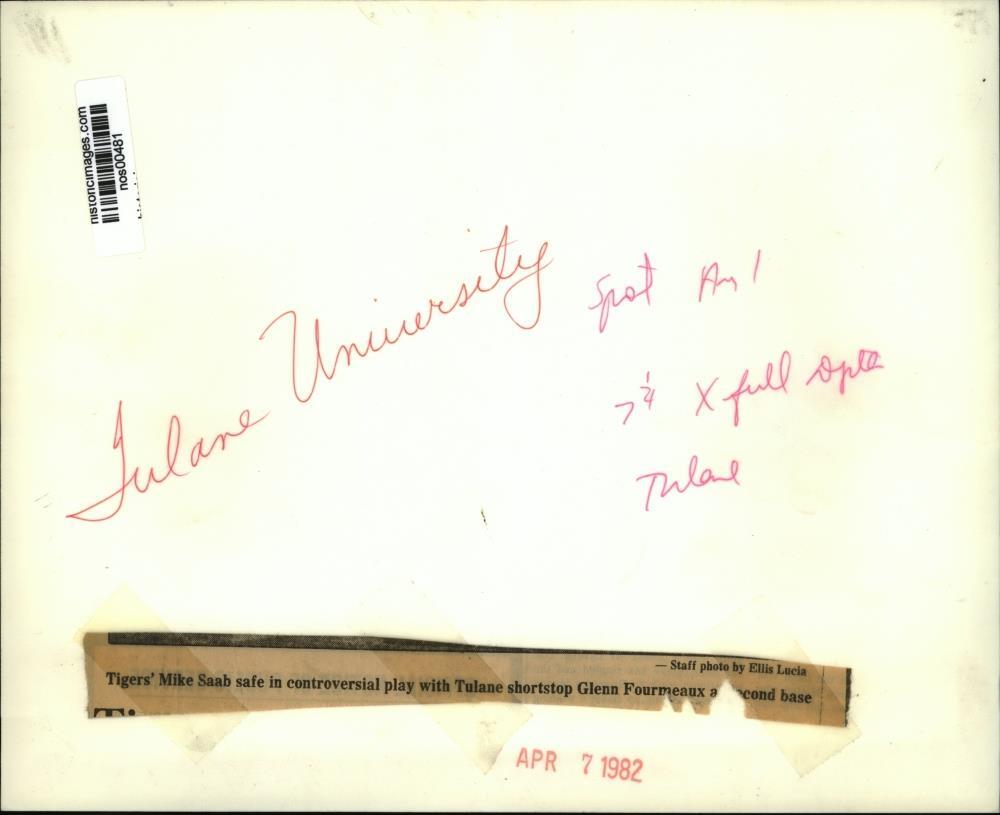 historicimages.com
nos00481
Tulane University
Spot
7 1/4 X full
Tulane
— Staff photo by Ellis Lucia
Tigers' Mike Saab safe in controversial play with Tulane shortstop Glenn Fourmeaux a cond base
APR 7 1982